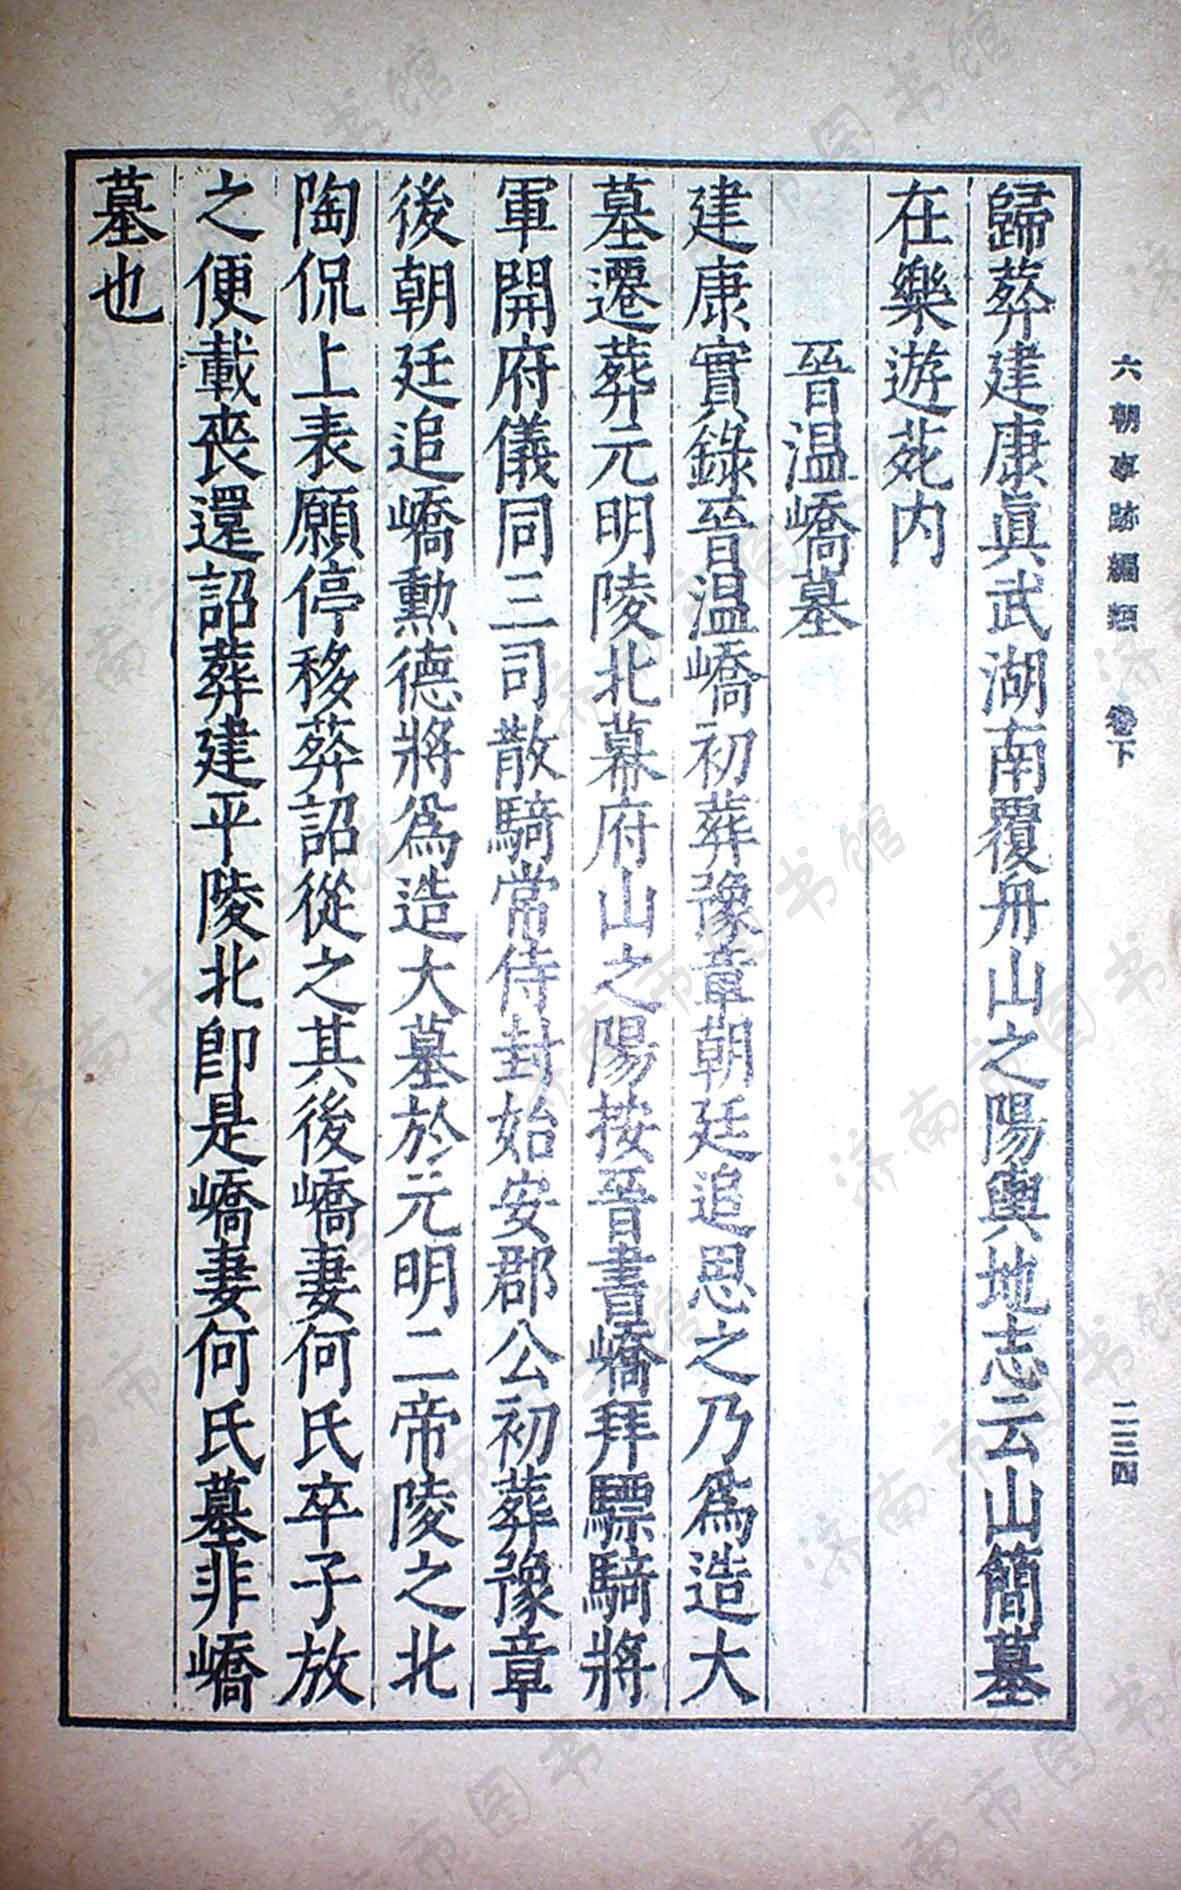 六朝事跡編類 卷下 二三四
歸葬建康眞武湖南覆舟山之陽輿地志云山簡墓
在樂遊苑内
晉温嶠墓
建康實錄晉温嶠初葬豫章朝廷追思之乃爲造大
墓遷葬元明陵北幕府山之陽按晉書嶠拜驃騎將
軍開府儀同三司散騎常侍封始安郡公初葬豫章
後朝廷追嶠勲德將爲造大墓於元明二帝陵之北
陶侃上表願停移葬詔從之其後嶠妻何氏卒子放
之便載喪還詔葬建平陵北卽是嶠妻何氏墓非嶠
墓也
济南市图书馆